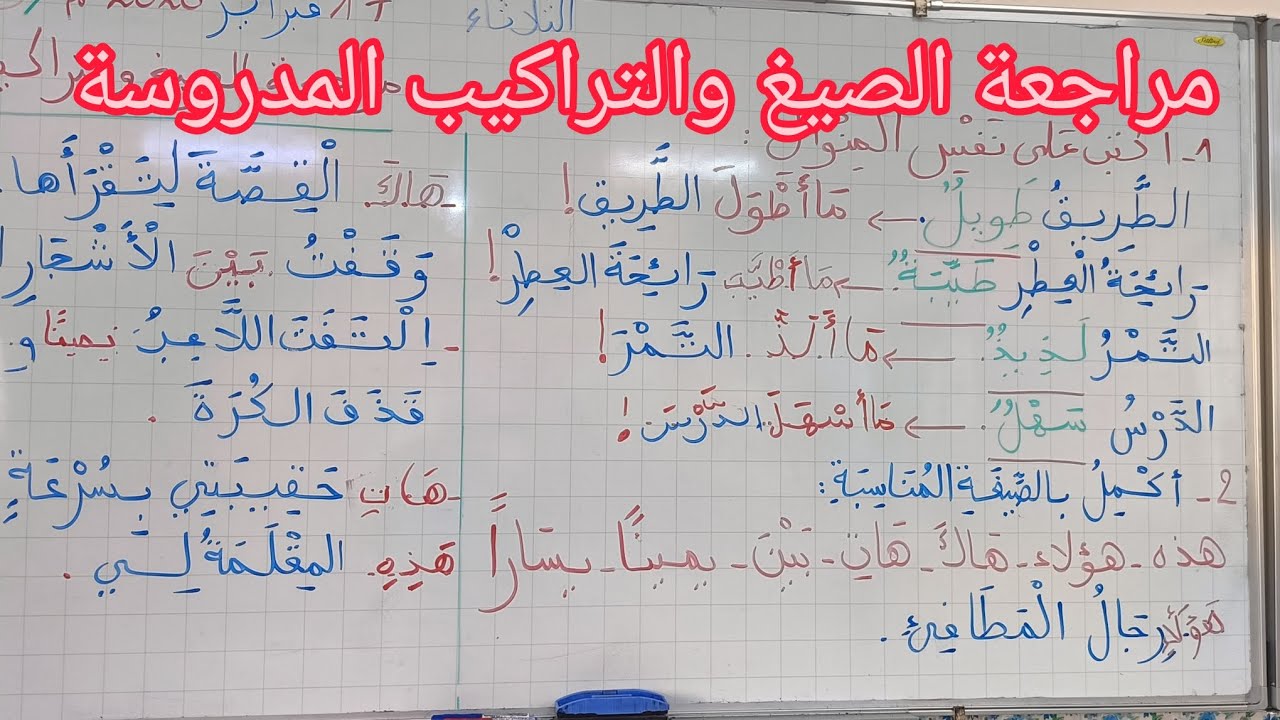 الثلاثاء 17 فبراير
مراجعة الصيغ والتراكيب المدروسة
1 - اكتب على نفس المنوال :
الطَّريقُ طَويلٌ. ← مَا أَطْوَلَ الطَّرِيق !
رَائِحَةُ الْعِطْرِ طَيِّبَةٌ. ← مَا أَطْيَبَ رَائِحَةَ العِطِرْ !
التَّمْرُ لَذِيذٌ. ← مَا أَلَذَّ التَّمْرَ !
الدَّرْسُ سَهْلٌ. ← مَا أَسْهَلَ الدَّرْسَ !
2 - أُكْمِلُ بالصِّيغَةِ المُنَاسِبَةِ :
هذه - هؤلاء - هَاكَ - هَاتِ - بَيْنَ - يمينًا - يسَارًا
رِجَالُ الْمَطَافِئِ .
- هَاكَ الْقِصَّةَ لِتَقْرَأَها.
وَقَفْتُ بَيْنَ الْأَشْجَارِ
- اِلْتَفَتَ اللَّاعِبُ يمينًا و
قَذَفَ الكُرَةَ .
- هَاتِ حَقِيبَتِي بِسُرْعَةٍ
هَذِهِ المِقْلَمَةُ لِي .